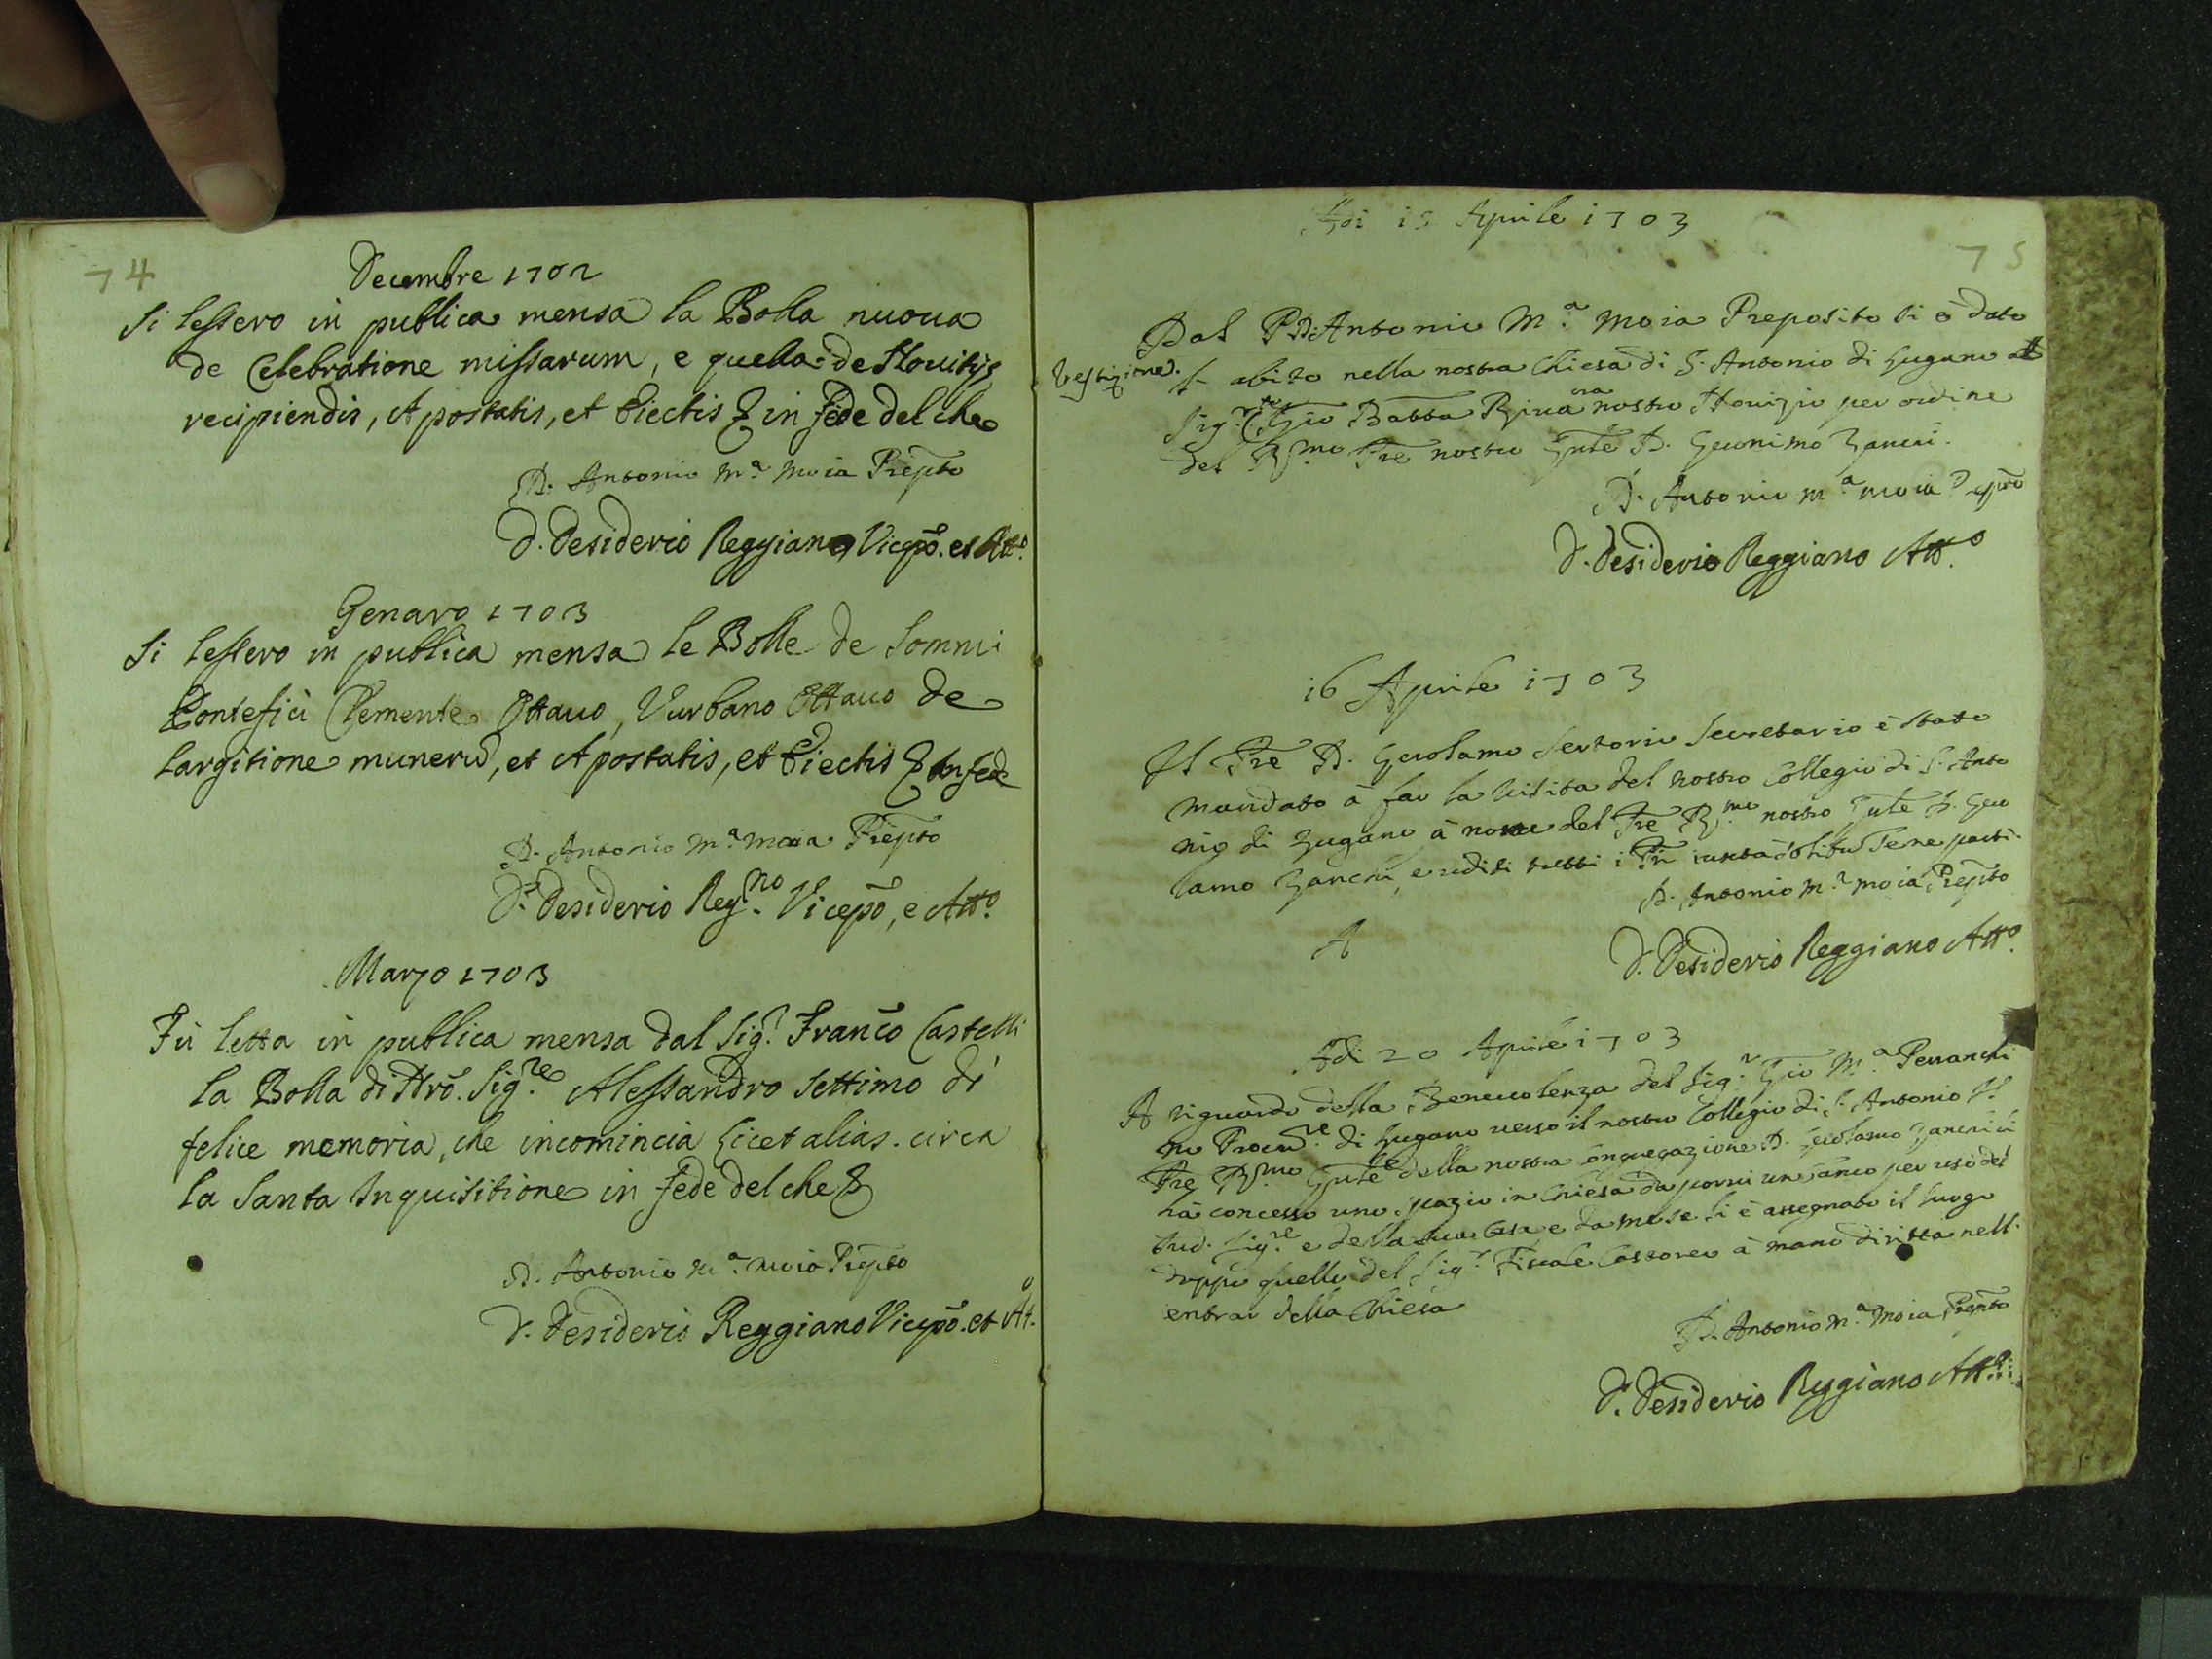 74
Decembre 1702
Si lessero in publica mensa la Bolla nuoua
de Celebratione missarum, e quella de Nouitijs
recipiendis, Apostatis, et Eiectis & in fede del che
D. Antonio M.ª Moia Prepto
D. Desiderio Reggiano Vicepo. et Att.o
Genaro 1703
Si lessero in publica mensa le Bolle de Sommi
Pontefici Clemente Ottauo, Vurbano Ottauo de
largitione muneru, et Apostatis, et Eiectis & In fede
D. Antonio M.ª Moia Prepto
D. Desiderio Reg.no Vicepo, e Att.o
Marzo 1703
Fù letta in publica mensa dal Sig.r Franco Castelli
la Bolla di Nro. Sig.re Alessandro settimo di
felice memoria, che incomincia Licet alias. circa
la Santa Inquisitione in fede del che &
D. Antonio M.ª Moia Prepto
D. Desiderio Reggiano Vicepo. et At.o
Adi 15 Aprile 1703
75
Dal P.D. Antonio M.ª Moia Preposito si è dato
Vestizione.
l' abito nella nostra Chiesa di S. Antonio di Lugano al
Sig.r Gio Batta Riua nostro Nouizio per ordine
del R.mo Pre nostro Gnle D. Geronimo Zanchi.
D. Antonio M.ª Moia Prepto
D. Desiderio Reggiano Att.o
16 Aprile 1703
Il Pre D. Gerolamo Sertorio Secretario è stato
mandato à far la uisita del nostro Collegio di S. Anto
nio di Lugano à nome del Pre R.mo nostro Gnle D. Gero
lamo Zanchi, e uditi tutti i Pri iuxta solitu se ne partì.
D. Antonio M.ª Moia Prepto
A
D. Desiderio Reggiano Att.o
Adi 20 Aprile 1703
A riguardo della Beneuolenza del Sig.r Gio M.ª
di Lugano uerso il nostro Collegio di S. Antonio Il
Pre R.mo Gnle della nostra Congregazione D. Gerolamo Zanchi li
hà concesso uno spazio in Chiesa da porui un banco per uso del
sud. Sig.re e della sua Casa e da me se li è assegnato il luogo
doppo quello del Sig.r Fiscale à mano diritta nell'
entrar della Chiesa
D. Antonio M.ª Moia Prepto
D. Desiderio Reggiano Att.o